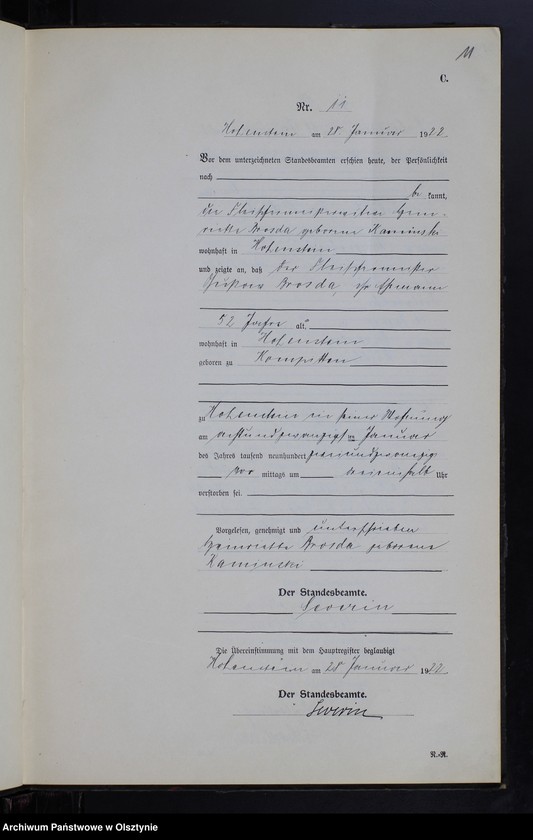 11
C.
Nr. 11
Hohenstein am 28 Januar 1922
Vor dem unterzeichneten Standesbeamten erschien heute, der Persönlichkeit
nach
be kannt,
die Fleischermeisterwitwe Hein-
riette Brosda geborene Kaminski
wohnhaft in Hohenstein
und zeigte an, daß der Fleischermeister
Brosda, ihr Ehemann
52 Jahre alt,
wohnhaft in Hohenstein
geboren zu
zu Hohenstein in seiner Wohnung
am achtundzwanzigsten Januar
des Jahres tausend neunhundert zweiundzwanzig
vor mittags um Uhr
verstorben sei.
Vorgelesen, genehmigt und unterschrieben
Heinriette Brosda geborene
Kaminski
Der Standesbeamte.
Severin
Die Übereinstimmung mit dem Hauptregister beglaubigt
Hohenstein am 28 Januar 1922
Der Standesbeamte.
Severin
N.-R.
Archiwum Państwowe w Olsztynie